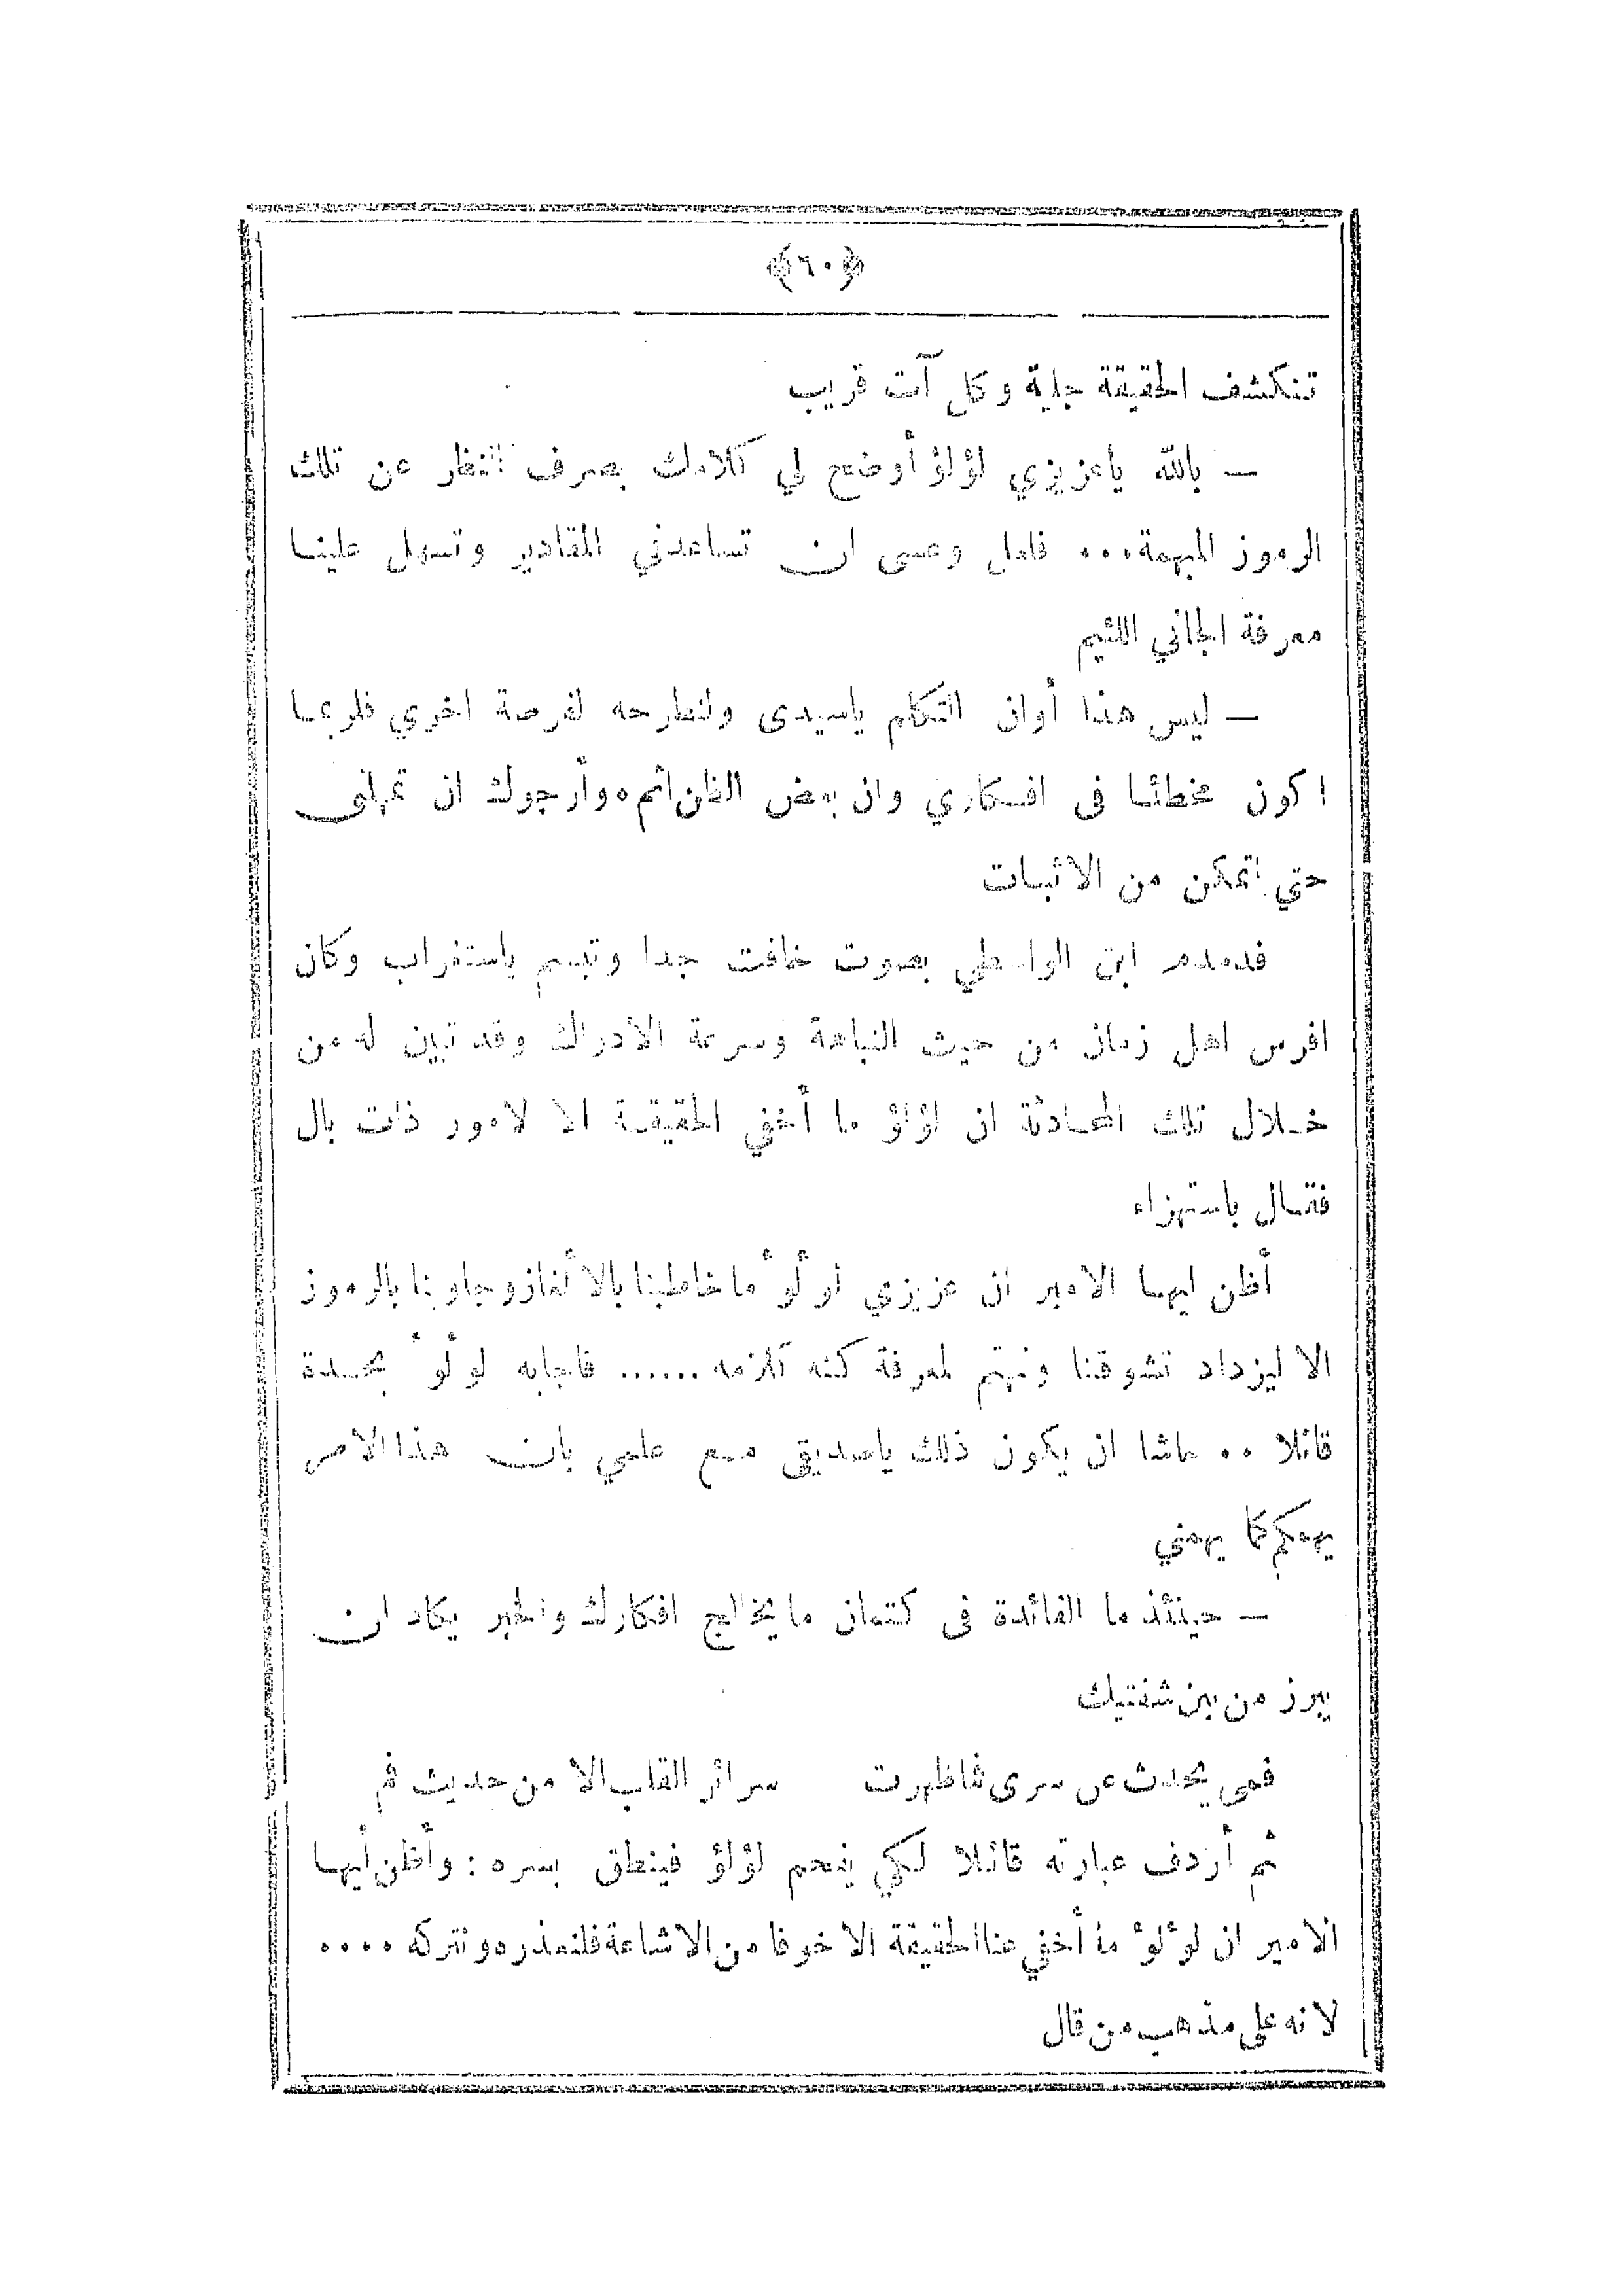 ﴿٦٠﴾
تنكشف الحقيقة جلية وكل آت قريب
— بالله ياعزيزي لؤلؤ أوضح لي كلامك بصرف النظر عن تلك
الرموز المبهمة٠٠٠ فلعل وعسى ان تساعدني المقادير وتسهل علينا
معرفة الجاني اللئيم
— ليس هذا أوان التكلم ياسيدى ولنطرحه لفرصة اخري فلربما
اكون مخطئا فى افكاري وان بعض الظن اثم ٥ وأرجوك ان تمهلنى
حتي اتمكن من الاثبات
فدمدم ابن الواسطي بصوت خافت جدا وتبسم باستغراب وكان
افرس اهل زمان من حيث النباهة وسرعة الادراك وقد تبين له من
خلال تلك المحادثة ان لؤلؤ ما أخفي الحقيقة الا لامور ذات بال
فقال باستهزاء
أظن ايها الامير ان عزيزي لوٴلوٴ ما خاطبنا بالألغاز وجاوبنا بالرموز
الا ليزداد تشوقنا ونهتم لمعرفة كنه كلامه ...... فاجابه لوٴلوٴ بحدة
قائلا ٠٠ حاشا ان يكون ذلك ياصديقى مع علمي بان هذا الامر
يهمكم كما يهمني
— حينئذ ما الفائدة فى كتمان ما يخالج افكارك والخبر يكاد ان
يبرز من بين شفتيك
فمى يحدث عن سرى فما ظهرت سرائر القلب الا من حديث فم
ثم أردف عبارته قائلا لكي يفحم لؤلؤ فينطق بسره : وأظن أيها
الامير ان لوٴلوٴ ما أخفي عنا الحقيقة الا خوفا من الاشاعة فلنعذره ونتركه ٠٠٠٠
لانه على مذهب من قال